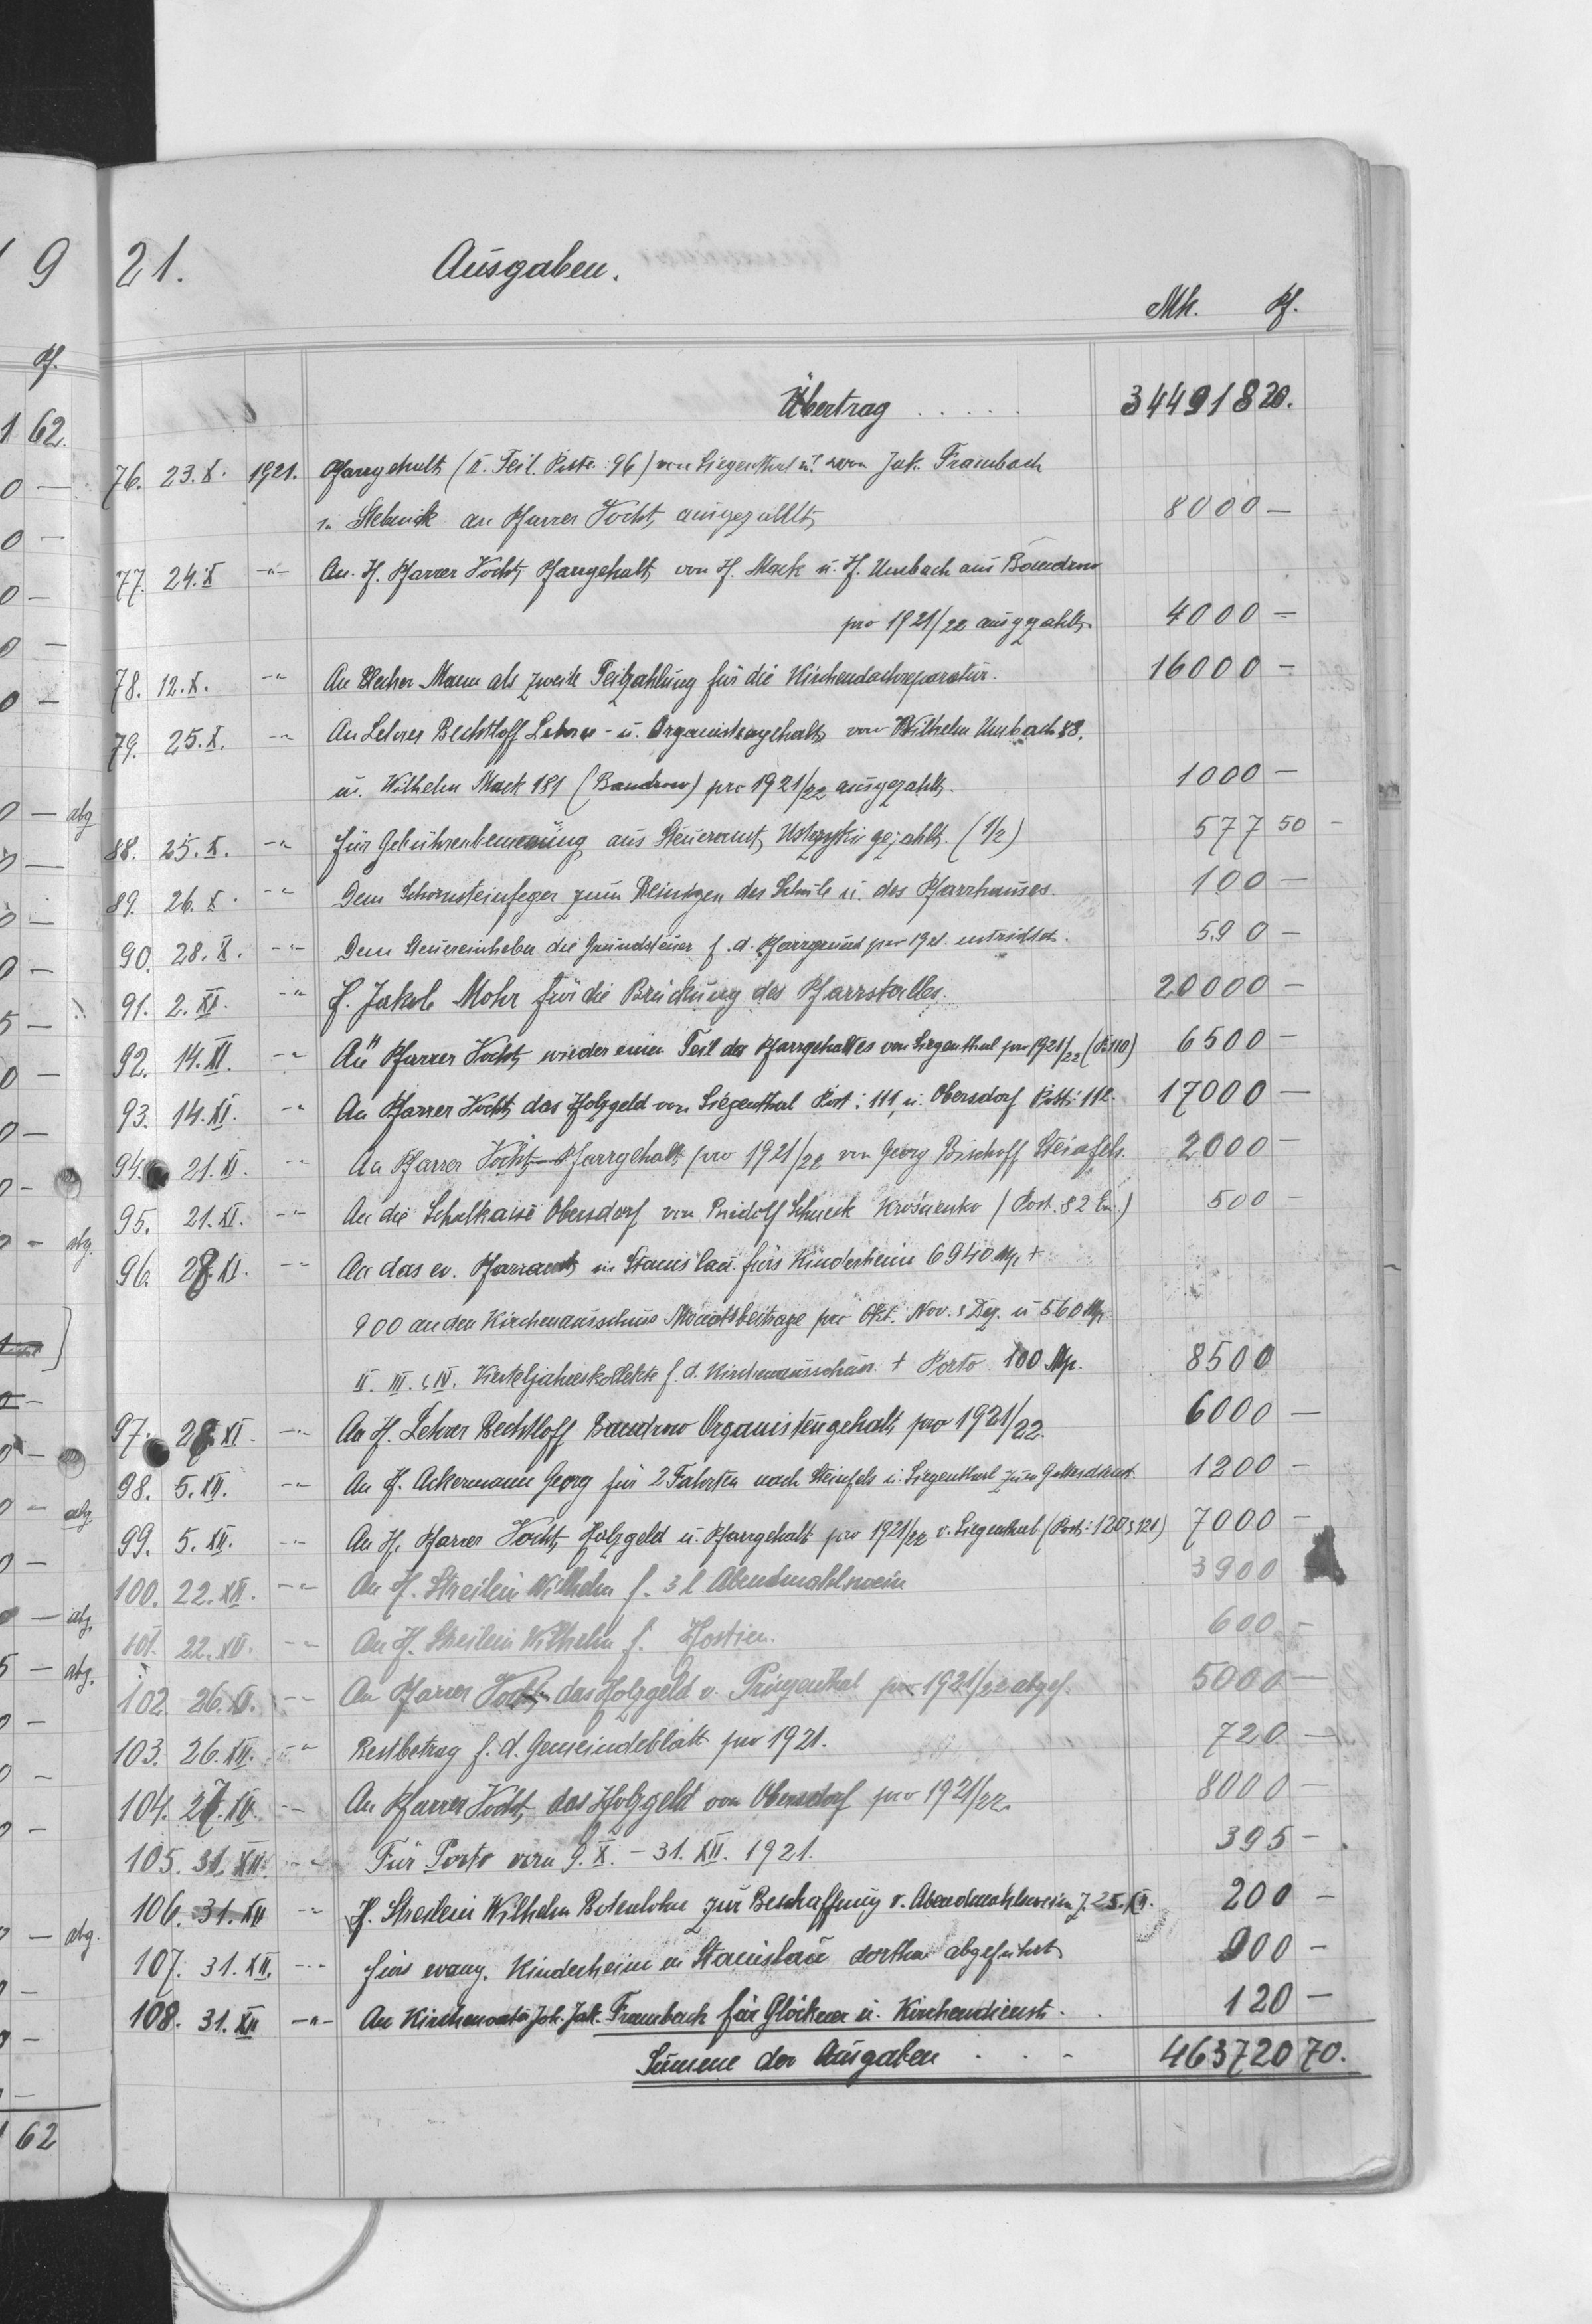 1 9 21. Ausgaben.
Mk. Pf.
Pf.
Übertrag . . . . . 344918 20.
1 62.
76. 23.X. 1921. Pfarrgehalt (II. Teil. Post. 96) von Siegenthal u. von Jak. Frambach
in Stebnik an Pfarrer Vocht, ausgezahlt, 8000 —
77. 24.X -"- An H. Pfarrer Vocht, Pfarrgehalt, von H. Mack u. H. Umbach aus Bandrow
pro 1921/22 ausgezahlt. 4000 —
78. 12.X. -"- An Mann als zweite Teilzahlung für die Kirchendachreparatur. 16000 —
79. 25.X. -"- An Lehrer Bechtloff Lehrer- u. Organistengehalt, von Wilhelm Umbach 88.
u. Wilhelm Mack 181 (Bandrow) pro 1921/22 ausgezahlt. 1000 —
abg
88. 25.X. -"- Für Gebührenbemessung aus Steueramt, Ustrzyki gezahlt. (1/2) 577 50 —
89. 26.X. -"- Dem Schornsteinfeger zum Reinigen der Schule u. des Pfarrhauses. 100 —
90. 28.X. -"- Dem Steuereinheber die Grundsteuer f. d. Pfarrgrund pro 1921. entrichtet. 590 —
91. 2.XI. -"- H. Jakob Mohr für die Brückung des Pfarrstalles. 20000 —
92. 14.XI. -"- An Pfarrer Vocht, wieder einen Teil des Pfarrgehaltes von Siegenthal pro 1921/22 (P. 110) 6500 —
93. 14.XI. -"- An Pfarrer Vocht, das Holzgeld von Siegenthal Post: 111, u. Obersdorf Post: 112. 17000 —
94. 21.XI. -"- An Pfarrer Vocht, Pfarrgehalt, pro 1921/22 von Georg Bischoff, Steinfels. 2000 —
95. 21.XI. -"- An die Schulkasse Obersdorf von Rudolf Schneck Krościenko (Post. 82 Ein.) 500 —
abg.
96. 28.XI. -"- An das ev. Pfarramt, in Stanislau fürs Kinderheim 6940 Mp +
900 an den Kirchenausschuss Monatsbeiträge pro Okt. Nov. & Dez. u 560 Mp
II. III. & IV. Vierteljahreskollekte f. d. Kirchenausschuss. + Porto 100 Mp. 8500
97. 28.XI. -"- An H. Lehrer Bechtloff Bandrow Organistengehalt pro 1921/22. 6000 —
98. 5.XII. -"- An H. Ackermann Georg für 2 Fahrten nach Steinfels u. Siegenthal zum Gottesdienst. 1200 —
abg.
99. 5.XII. -"- An H. Pfarrer Vocht, Holzgeld u. Pfarrgehalt pro 1921/22 v. Siegenthal (Post: 120 & 121) 7000 —
100. 22.XII. -"- An H. Streilein Wilhelm f. 3 l. Abendmahlswein 3900
abg.
101. 22.XII. -"- An H. Streilein Wilhelm f. Hostien. 600 —
abg.
102. 26.XII. -"- An Pfarrer Vocht, das Holzgeld v. Prinzenthal pro 1921/22 abgef. 5000 —
103. 26.XII. -"- Restbetrag f. d. Gemeindeblatt pro 1921. 720 —
104. 27.XII. -"- An Pfarrer Vocht, das Holzgeld von Obersdorf pro 1921/22. 8000 —
105. 31.XII. -"- Für Porto vom 9.X. – 31.XII. 1921. 395 —
106. 31.XII -"- H. Streilein Wilhelm Botenlohn zur Beschaffung v. Abendmahlswein z. 25.XII. 200 —
abg.
107. 31.XII. -"- Fürs evang. Kinderheim in Stanislau dorthin abgeführt, 900 —
108. 31.XII -"- An Kirchenvater Joh. Jak. Frambach für Glöckner u. Kirchendienst. 120 —
Summe der Ausgaben . . - 463720 70.
62